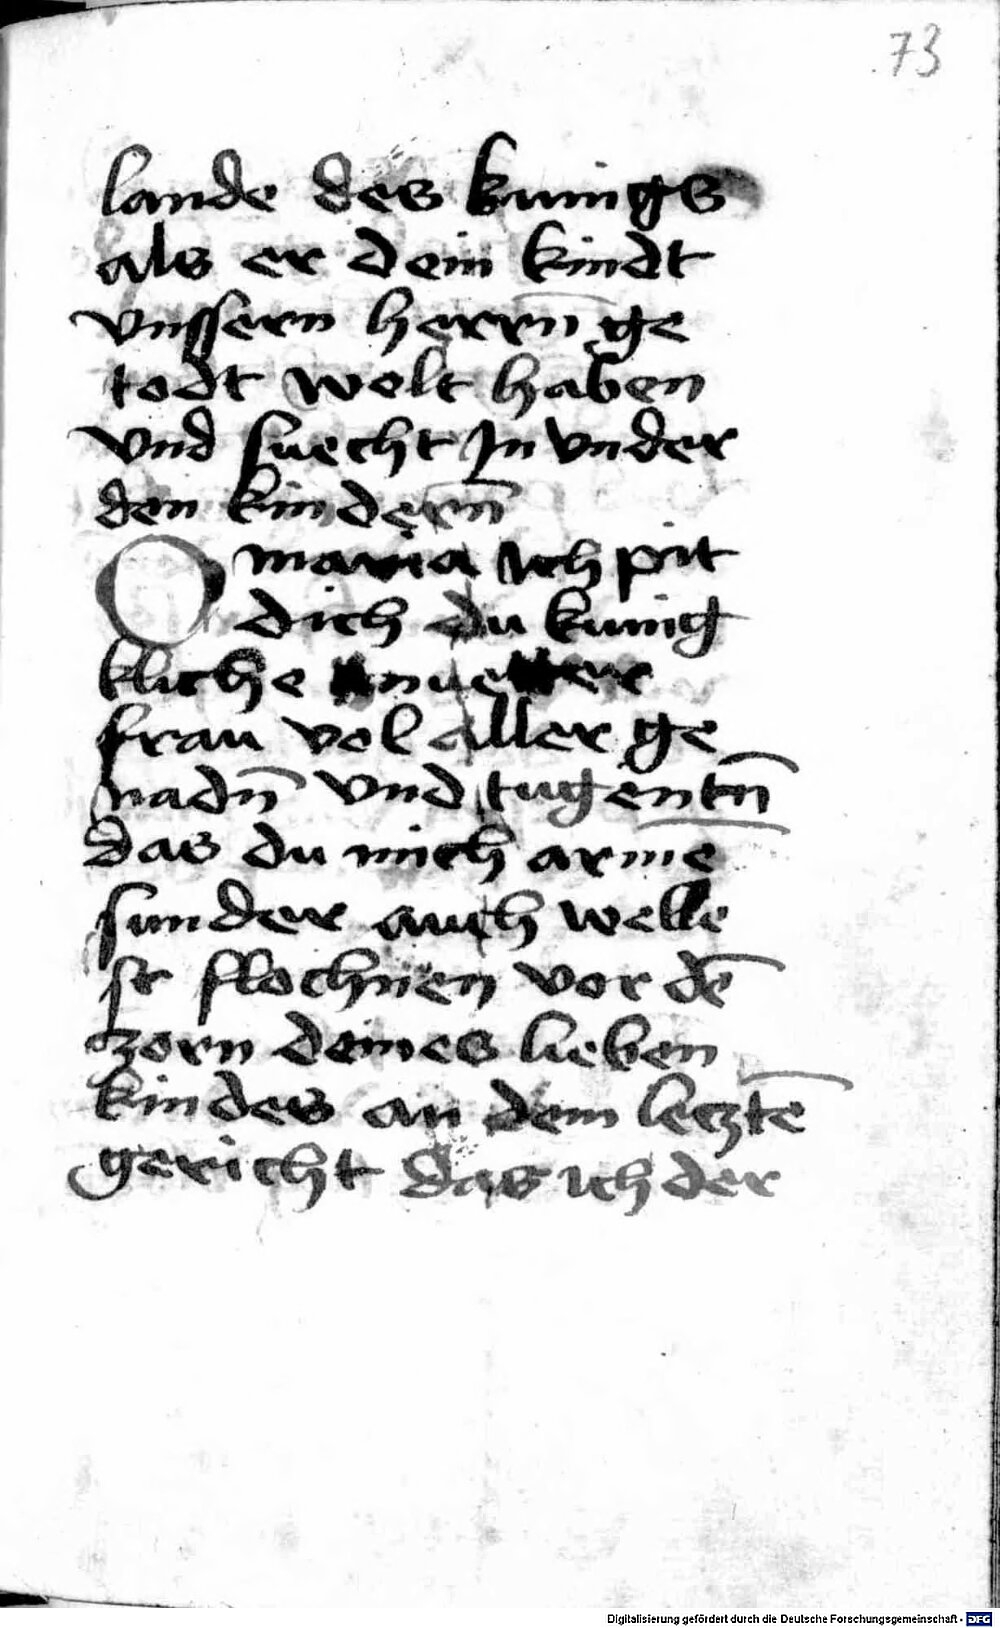 73
lande des kunigs
als er dein kindt
vnssern herrn̄ ge
todt wolt haben
vnd suecht In vnder
den kindern̄
O maria ich pit
dich du kunig
kliche mueter
frau vol aller ge
nadn̄ vnd tugentn̄
das du mich armē
sunder auch welle
st flochnen vor dē
zorn deines lieben
kindes an dem letztē
gericht das ich der
Digitalisierung gefördert durch die Deutsche Forschungsgemeinschaft - DFG